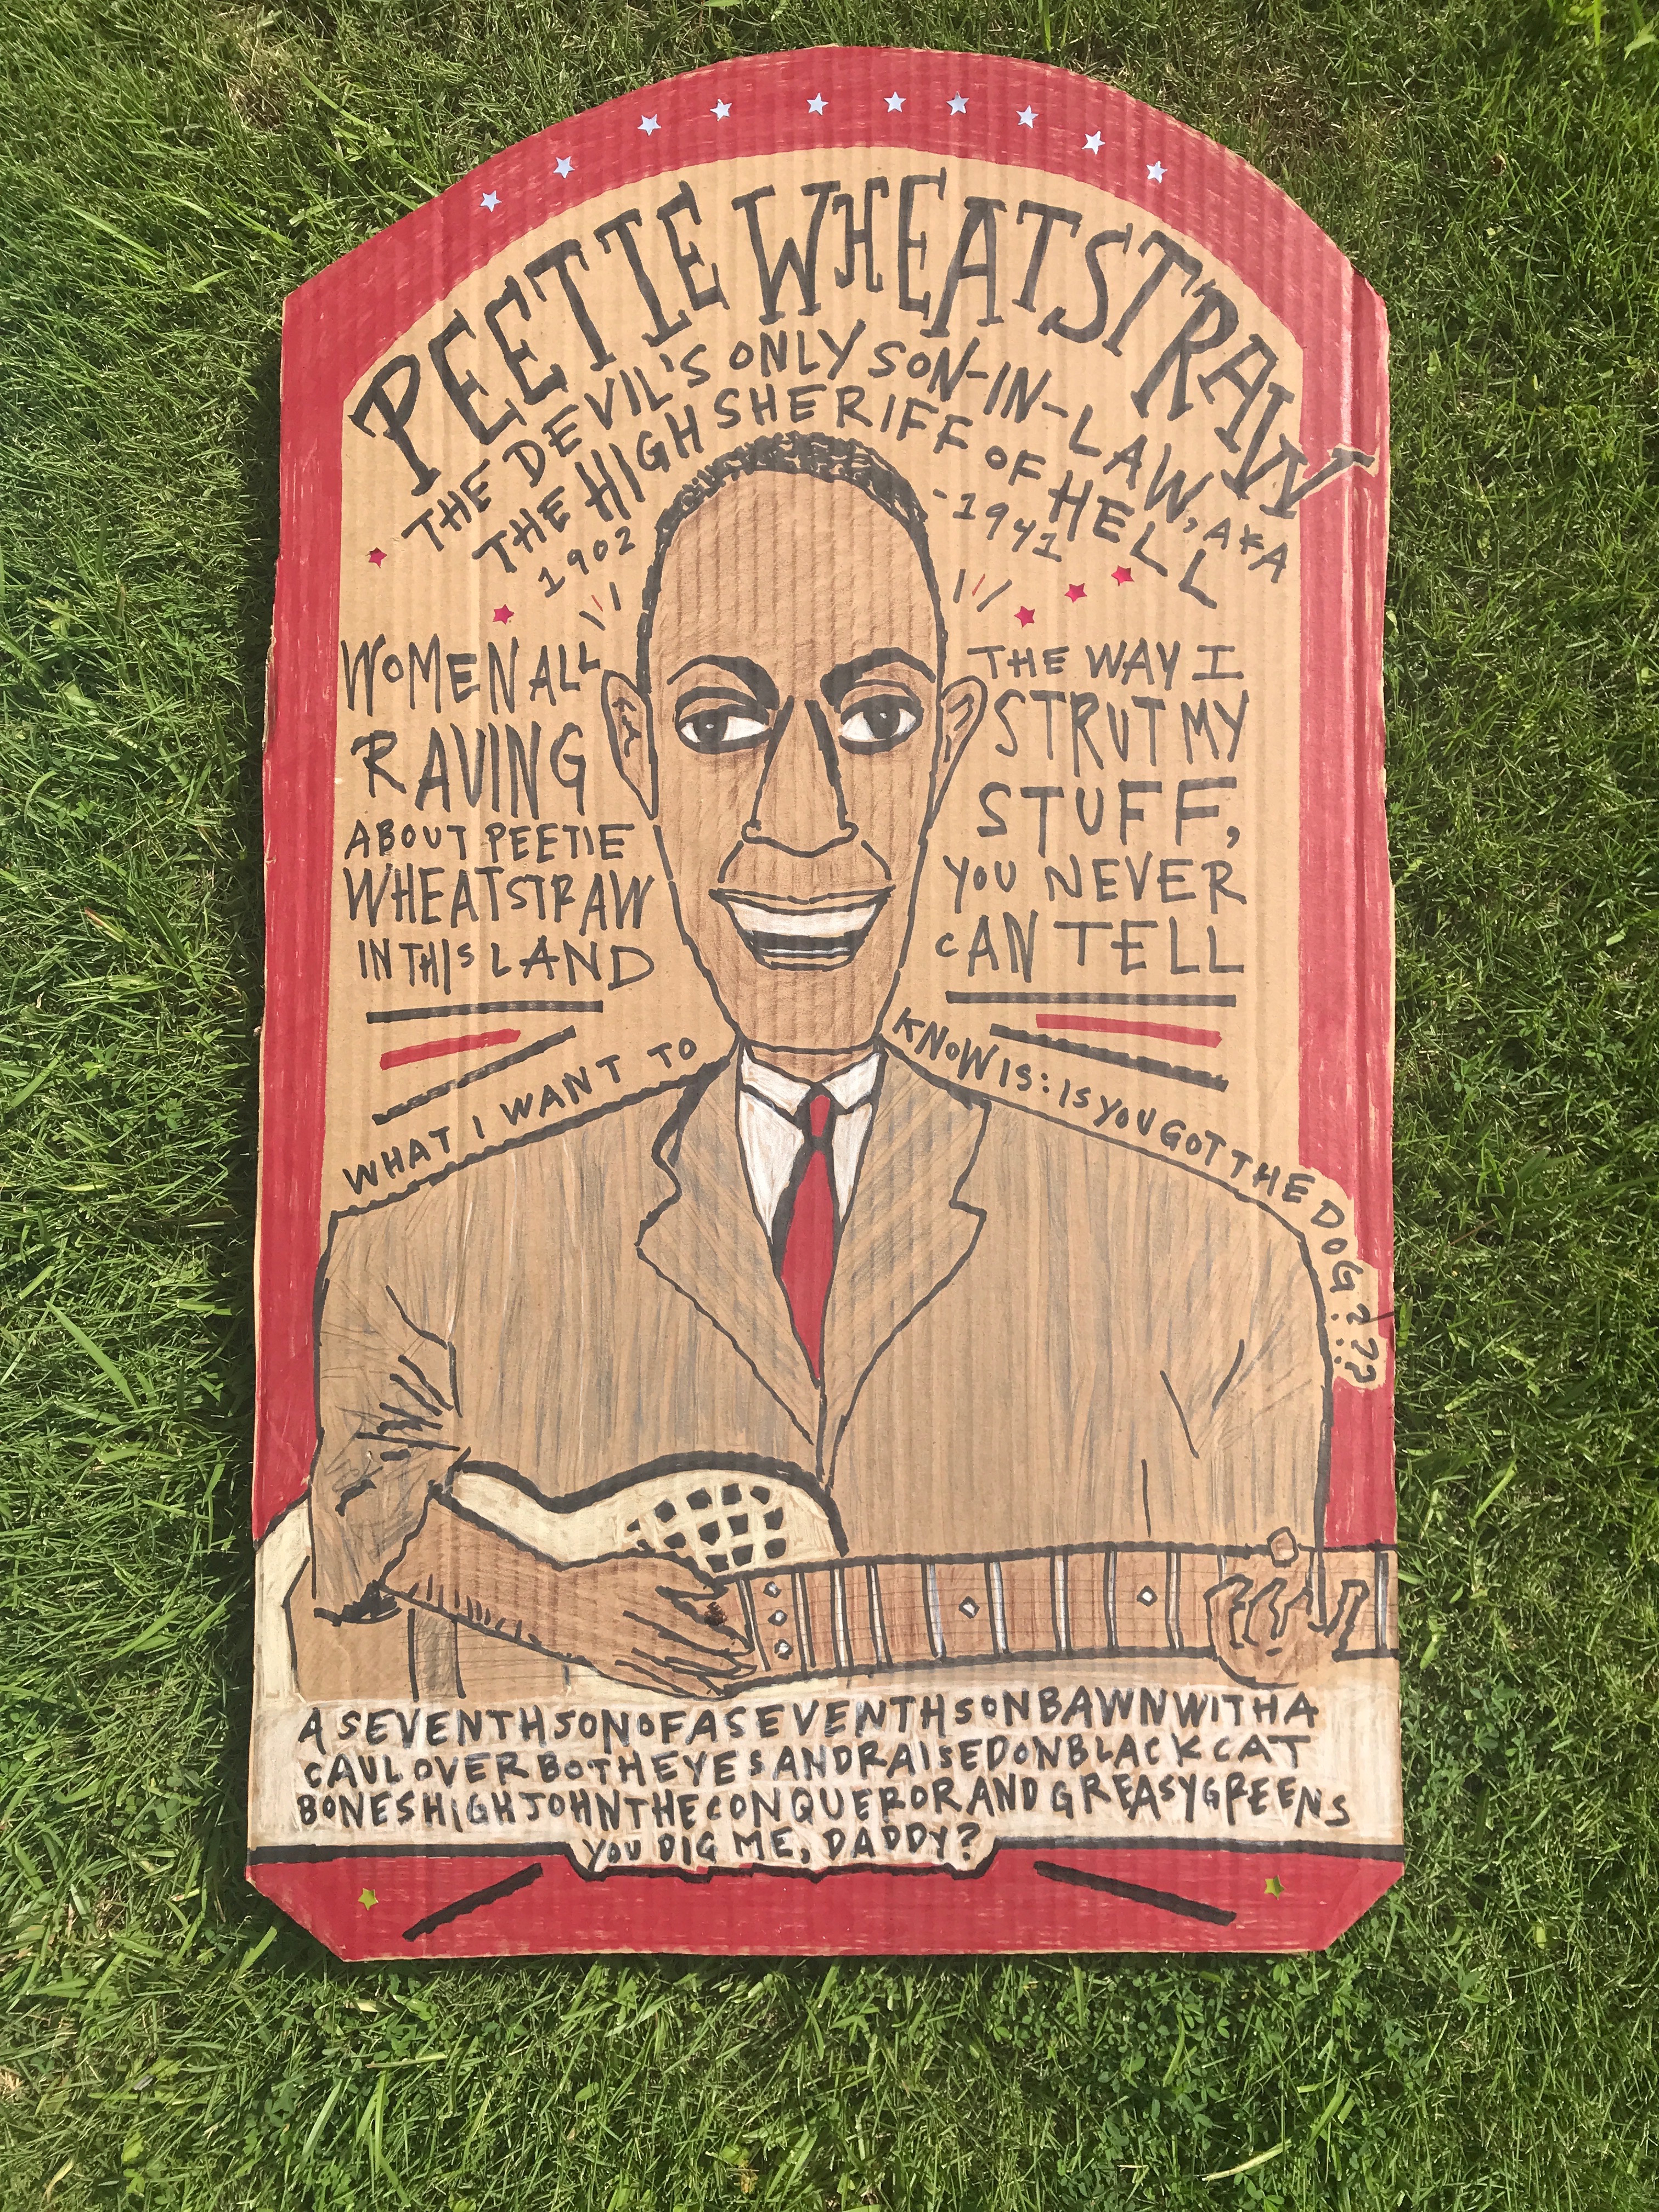 PEETIE WHEATSTRAW
THE DEVIL'S ONLY SON-IN-LAW, AKA
THE HIGH SHERIFF OF HELL
1902 -1941
WOMEN ALL
RAVING
ABOUT PEETIE
WHEATSTRAW
IN THIS LAND
THE WAY I
STRUT MY
STUFF,
YOU NEVER
CAN TELL
WHAT I WANT TO KNOW IS: IS YOU GOT THE DOG???
A SEVENTH SON OF A SEVENTH SON BAWN WITH A
CAUL OVER BOTH EYES AND RAISED ON BLACK CAT
BONES HIGH JOHN THE CONQUEROR AND GREASY GREENS
YOU DIG ME, DADDY?